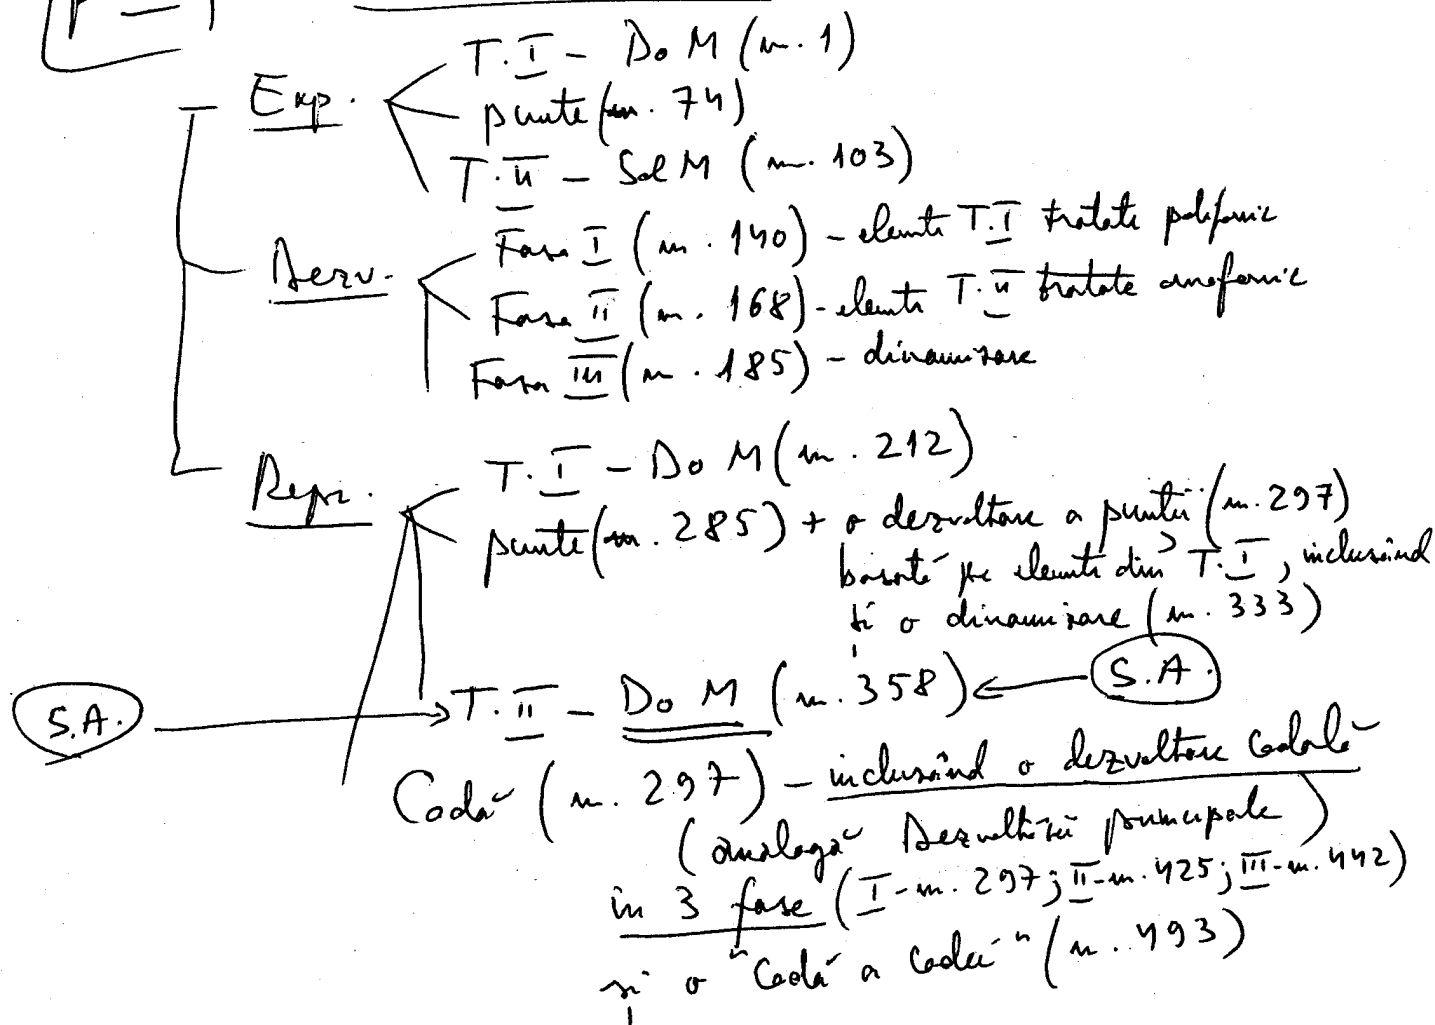 T.I – Do M (m. 1)
Exp.
punte (m. 74)
T.II – Sol M (m. 103)
Faza I (m. 140) – elemente T.I tratate polifonic
Dezv.
Faza II (m. 168) – elemente T.II tratate omofonic
Faza III (m. 185) – dinamizare
T.I – Do M (m. 212)
Repr.
punte (m. 285) + o dezvoltare a punții (m. 297)
bazată pe elemente din T.I, incluzând
și o dinamizare (m. 333)
S.A.
T.II – Do M (m. 358)
S.A.
Codă (m. 297) – incluzând o dezvoltare Codală
(analogă Dezvoltării principale)
în 3 faze (I-m. 297; II-m. 425; III-m. 442)
și o "Codă a Codei" (m. 493)